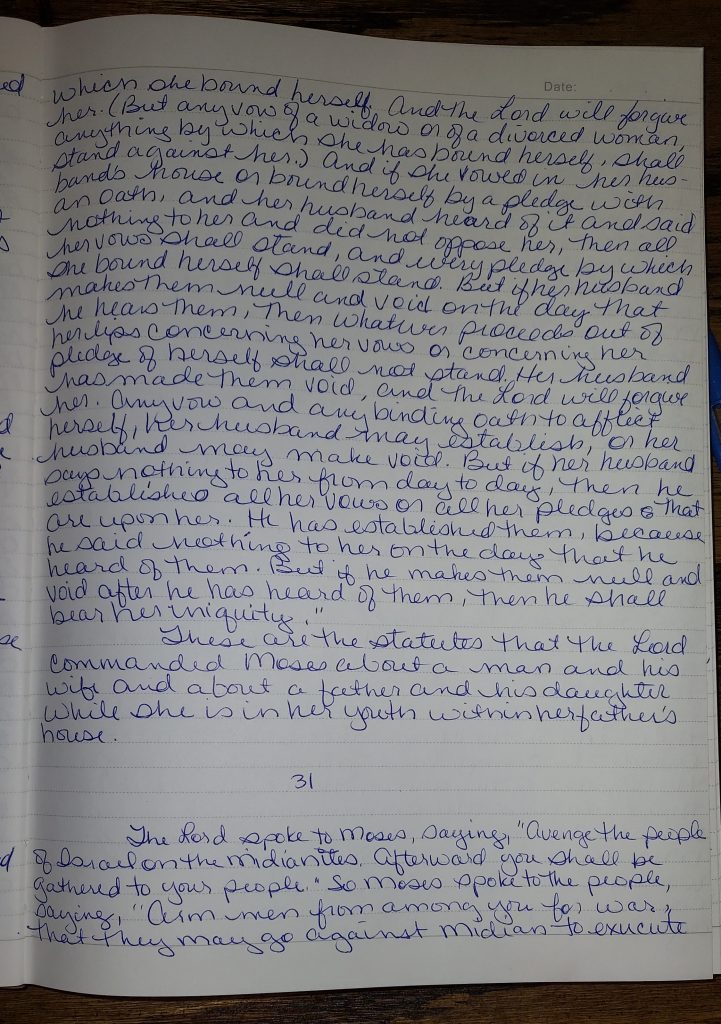 Date:
which she bound herself. And the Lord will forgive
her. (But any vow of a widow or of a divorced woman,
anything by which she has bound herself, shall
stand against her.) And if she vowed in her hus-
bands house or bound herself by a pledge with
an oath, and her husband heard of it and said
nothing to her and did not oppose her, then all
her vows shall stand, and every pledge by which
she bound herself shall stand. But if her husband
makes them null and void on the day that
he hears them, then whatever proceeds out of
her lips concerning her vows or concerning her
pledge of herself shall not stand. Her husband
has made them void, and the Lord will forgive
her. Any vow and any binding oath to afflict
herself, her husband may establish, or her
husband may make void. But if her husband
says nothing to her from day to day, then he
establishes all her vows or all her pledges that
are upon her. He has established them, because
he said nothing to her on the day that he
heard of them. But if he makes them null and
void after he has heard of them, then he shall
bear her iniquity."
These are the statutes that the Lord
commanded Moses about a man and his
wife and about a father and his daughter
while she is in her youth within her father's
house.
31
The Lord spoke to Moses, saying, "Avenge the people
of Israel on the Midianites. Afterward you shall be
gathered to your people." So Moses spoke to the people,
saying, "Arm men from among you for war,
that they may go against Midian to exucute